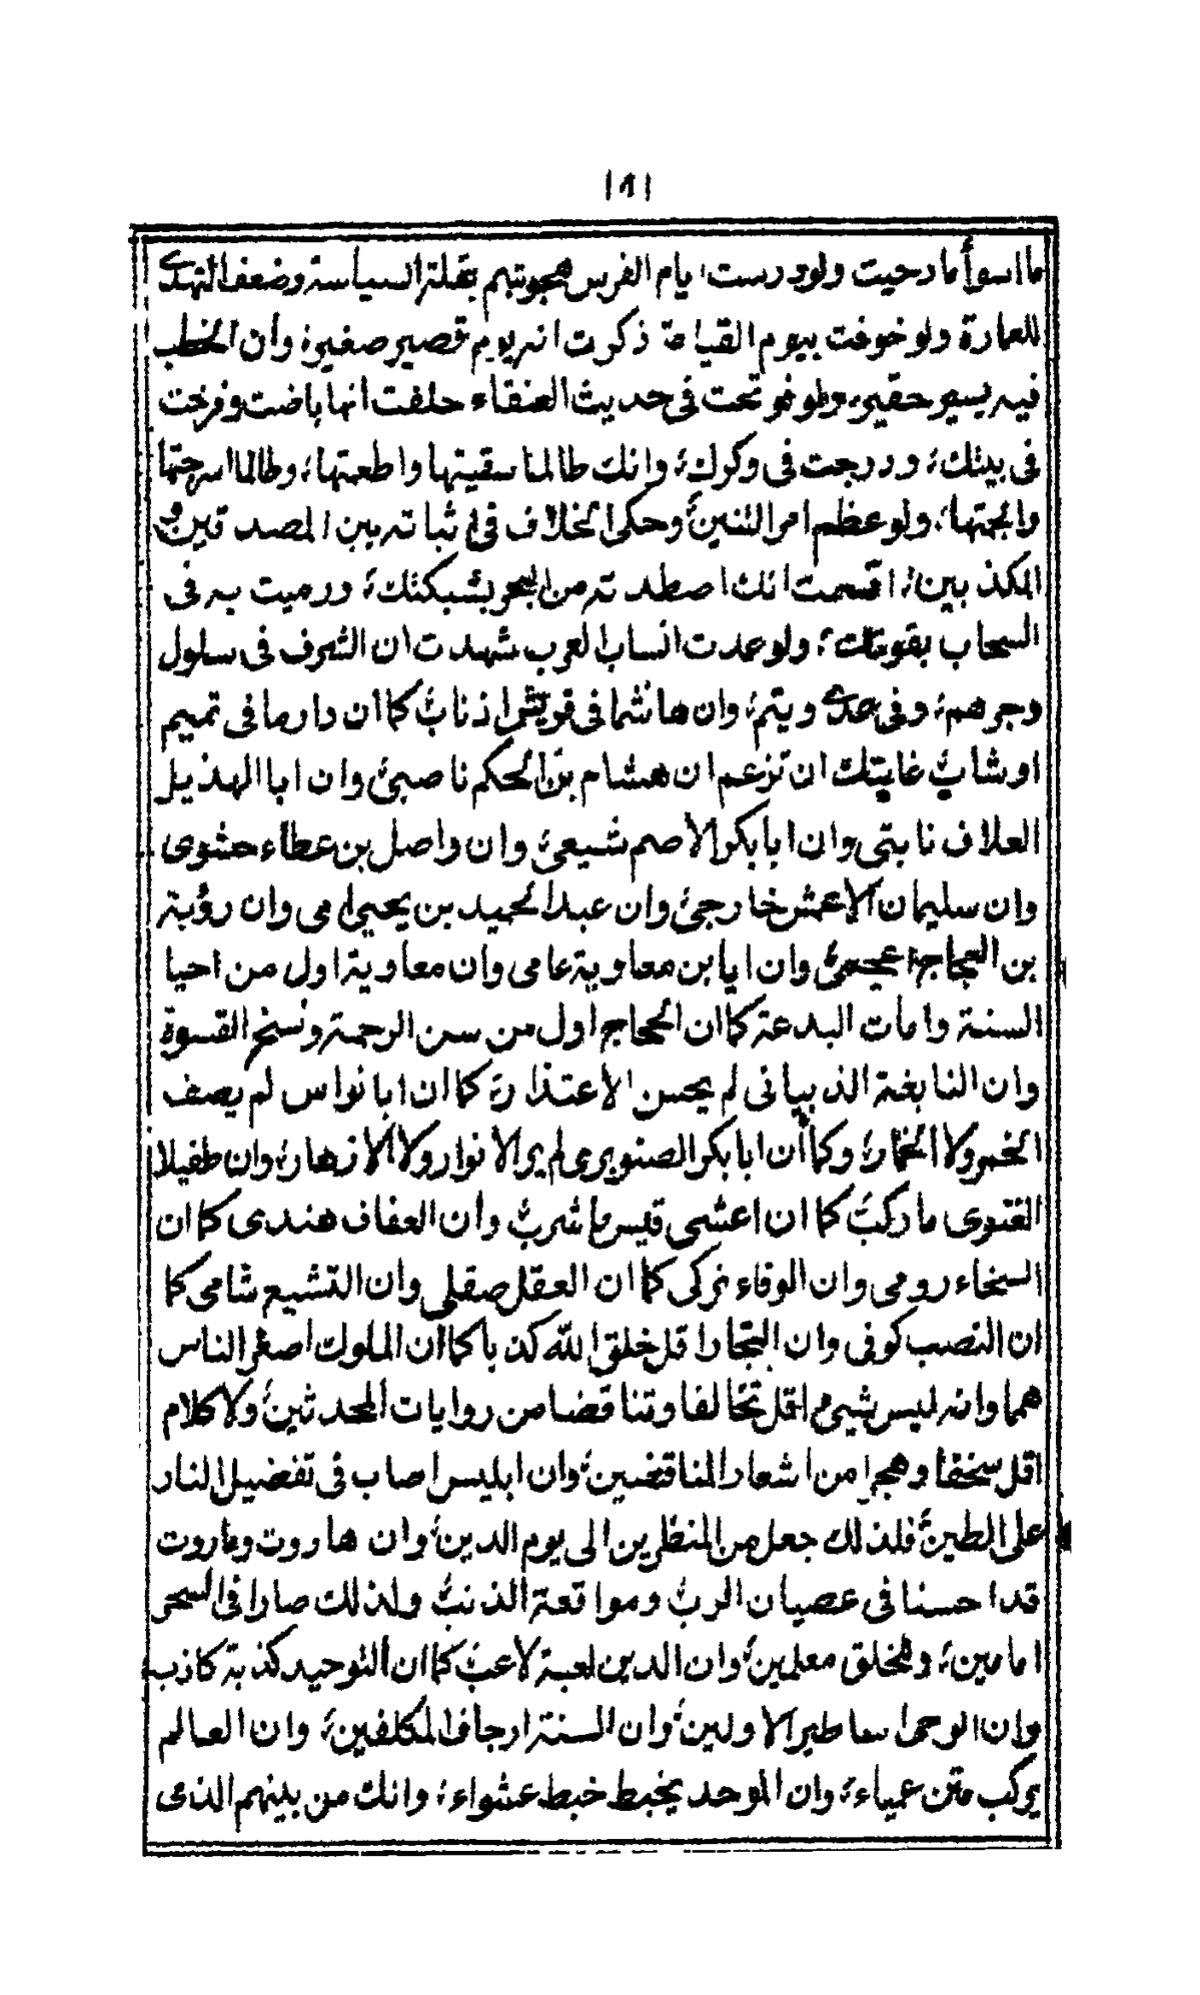 ١٨١
ما اسوأ ما دحيت ولو درست ايام الفرس هجوتهم بقلة السياسة وضعف التهدى
للعمارة ولو خوفت بيوم القيامة ذكرت انه يوم قصير صغير؛ وأن الخطب
فيه يسير حقير، ولو فوتحت فى حديث العنقاء حلفت انها باضت وفرخت
فى بيتك؛ ودرجت فى وكرك؛ وانك طالما سقيتها واطعمتها؛ وطالما اسرجتها
والجمتها؛ ولو عظم امر التنين وحكى الخلاف فى اثباته بين المصدقين و
المكذبين؛ اقسمت انك اصطدته من البحر بشبكتك؛ ورميت به فى
السحاب بقوتك؛ ولو عدت انساب العرب شهدت ان الشرف فى سلول
وجرهم؛ وفى عدى وتيم؛ وان هاشما فى قريش اذناب كما ان دارما فى تميم
اوشاب غايتك ان تزعم ان هشام بن الحكم ناصبى وان ابا الهذيل
العلاف نابتى وان ابا بكر الاصم شيعى وان واصل بن عطاء حشوى
وان سليمان الاعمش خارجى وان عبد الحميد بن يحيى امى وان رؤبة
بن العجاج اعجمى وان ايا بن معاوية عامى وان معاوية اول من احيا
السنة وامات البدعة كما ان الحجاج اول من سن الرحمة ونسخ القسوة
وان النابغة الذبيانى لم يحسن الاعتذارة كما ان ابا نواس لم يصف
الخمر ولا الخمار؛ وكما أن ابا بكر الصنوبرى لم ير الانوار ولا الازهار؛ وان طفيلا
الغنوى ما ركب كما ان اعشى قيس ما شرب وأن العفاف هندى كما ان
السخاء رومى وان الوفاء تركى كما ان العقل صقلى وان التشيع شامى كما
ان النصب كوفى وان التجار اقل خلق الله كذبا كما ان الملوك اصغر الناس
هما وانه ليس شيئ اقل تخالفا وتناقضا من روايات المحدثين ولا كلام
اقل سخفا وهجرا من اشعار المناقضين؛ وان ابليس اصاب فى تفضيل النار
على الطين فلذلك جعل من المنظرين الى يوم الدين وان هاروت وماروت
قد احسنا فى عصيان الرب ومواقعة الذنب ولذلك صارا فى السحر
امامين؛ وللخلق معلمين؛ وان الدين لعبة لاعب كما ان التوحيد كذبة كاذب
وان الوحى اساطير الاولين؛ وان السنة ارجاف المكلفين؛ وان العالم
يركب متن عمياء؛ وان الموحد يخبط خبط عشواء؛ وانك من بينهم الذى